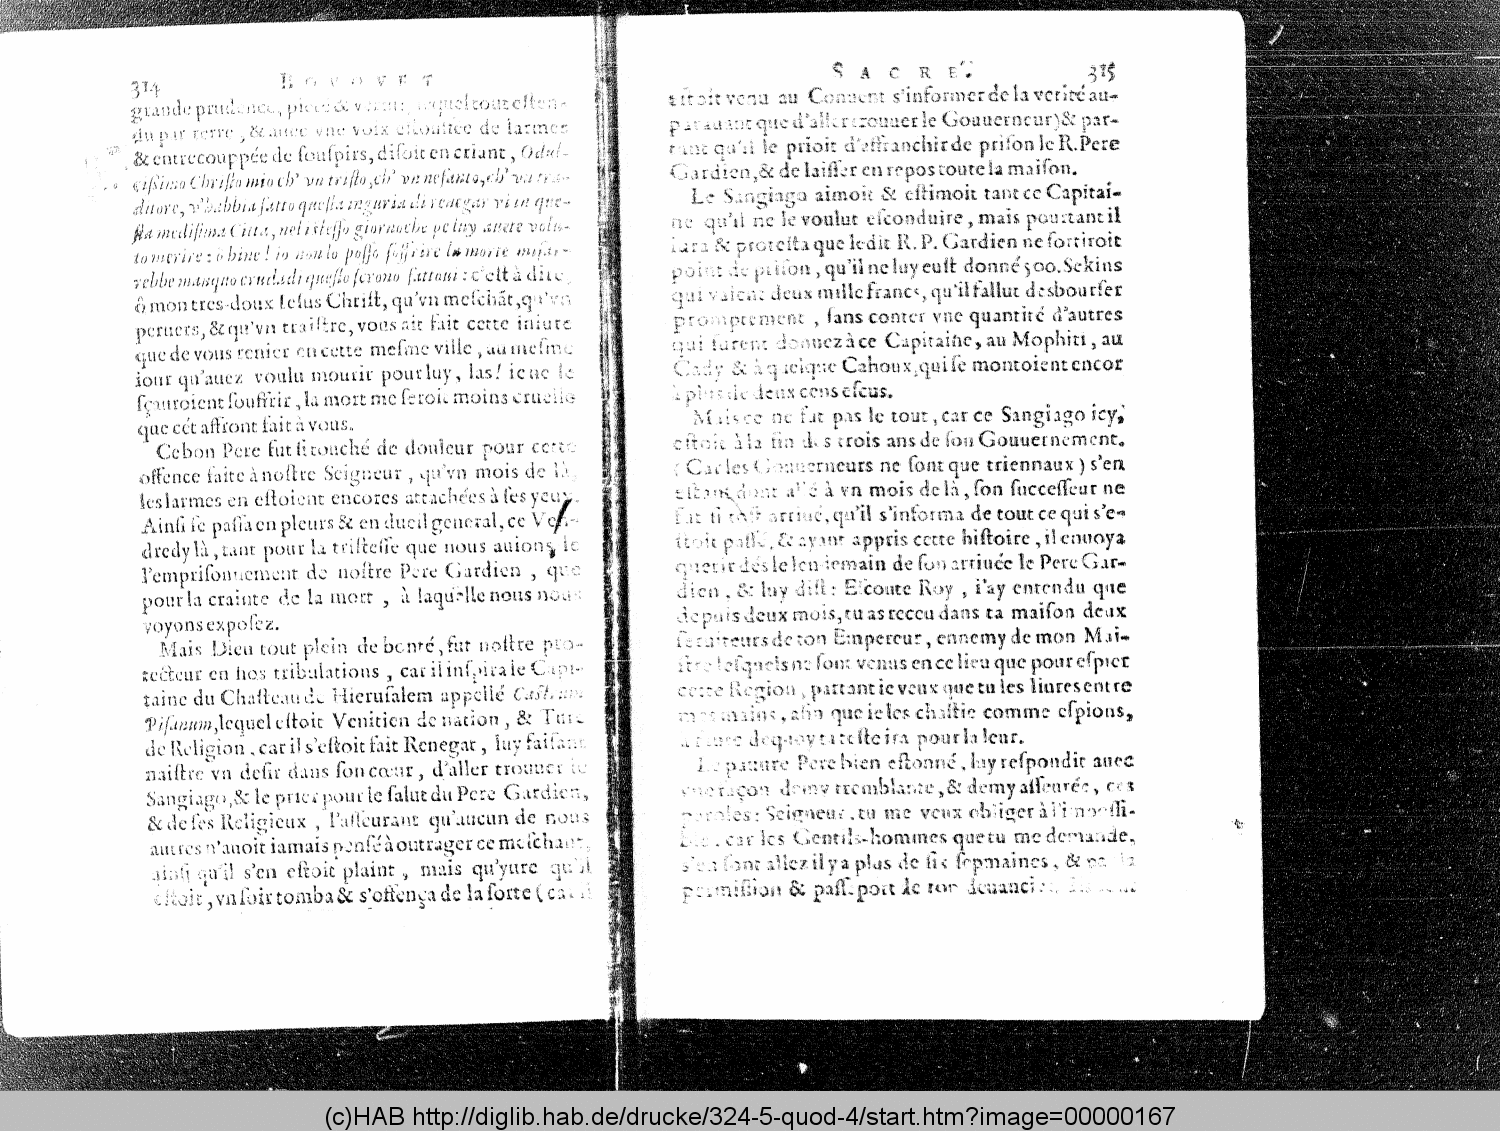 314 BOVQVET
grande prudence, pieté & vertu, lequel tout esten-
du par terre, & auec vne voix estouffée de larmes
& entrecouppée de souspirs, disoit en criant, O dul-
cissimo Christo mio ch' vn tristo, ch' vn nesanto, ch' vn tra-
ditore, v'habbia fatto questa inguria di renegar vi in que-
sta medisima Citta, nel istesso giorno che pe luy auete volu-
to morire: o bine! io non lo posso soffrire la morte misar-
rebbe manquo cruda di questo scrono fattoui: c'est à dire,
ô mon tres-doux Iesus Christ, qu'vn meschāt, qu'vn
peruers, & qu'vn traistre, vous ait fait cette iniure
que de vous renier en cette mesme ville, au mesme
iour qu'auez voulu mourir pour luy, las! ie ne le
sçauroient souffrir, la mort me seroit moins cruelle
que cét affront fait à vous.
Ce bon Pere fut si touché de douleur pour cette
offence faite à nostre Seigneur, qu'vn mois de là,
les larmes en estoient encores attachées à ses yeux.
Ainsi se passa en pleurs & en dueil general, ce Ven-
dredy là, tant pour la tristesse que nous auions, le
l'emprisonnement de nostre Pere Gardien, que
pour la crainte de la mort, à laquelle nous nous
voyons exposez.
Mais Dieu tout plein de bonté, fut nostre pro-
tecteur en nos tribulations, car il inspira le Capi-
taine du Chasteau de Hierusalem appellé
Pisanum, lequel estoit Venitien de nation, & Turc
de Religion, car il s'estoit fait Renegat, luy faisant
naistre vn desir dans son cœur, d'aller trouuer le
Sangiago, & le prier pour le salut du Pere Gardien,
& de ses Religieux, l'asseurant qu'aucun de nous
autres n'auoit iamais pensé à outrager ce meschant,
ainsi qu'il s'en estoit plaint, mais qu'yure qu'il
estoit, vn soir tomba & s'offença de la sorte (car il
SACRE'. 315
estoit venu au Conuent s'informer de la verité au-
parauant que d'aller trouuer le Gouuerneur) & par-
tant qu'il le prioit d'affranchir de prison le R. Pere
Gardien, & de laisser en repos toute la maison.
Le Sangiago aimoit & estimoit tant ce Capitai-
ne qu'il ne le voulut esconduire, mais pourtant il
iura & protesta que ledit R. P. Gardien ne sortiroit
point de prison, qu'il ne luy eust donné 500. Sekins
qui valent deux mille francs, qu'il fallut desbourser
promptement, sans conter vne quantité d'autres
qui furent donnez à ce Capitaine, au Mophiti, au
Cady & à quelque Cahoux, qui se montoient encor
à plus de deux cens escus.
Mais ce ne fut pas le tout, car ce Sangiago icy,
estoit à la fin des trois ans de son Gouuernement.
(Car les Gouuerneurs ne sont que triennaux) s'en
estant dont allé à vn mois de là, son successeur ne
fut si tost arriué, qu'il s'informa de tout ce qui s'e-
stoit passé, & ayant appris cette histoire, il enuoya
querir dés le lendemain de son arriuée le Pere Gar-
dien, & luy dist: Escoute Roy, i'ay entendu que
depuis deux mois, tu as receu dans ta maison deux
seruiteurs de ton Empereur, ennemy de mon Mai-
stre lesquels ne sont venus en ce lieu que pour espier
cette Region, partant ie veux que tu les liures entre
mes mains, afin que ie les chastie comme espions,
à faute dequoy ta teste ira pour la leur.
Le pauure Pere bien estonné, luy respondit auec
vne façon demy tremblante, & demy asseurée, ces
paroles: Seigneur, tu me veux obliger à l'impossi-
ble, car les Gentils-hommes que tu me demande,
s'en sont allez il y a plus de six sepmaines, & par la
permission & passeport de ton deuancier,
(c)HAB http://diglib.hab.de/drucke/324-5-quod-4/start.htm?image=00000167